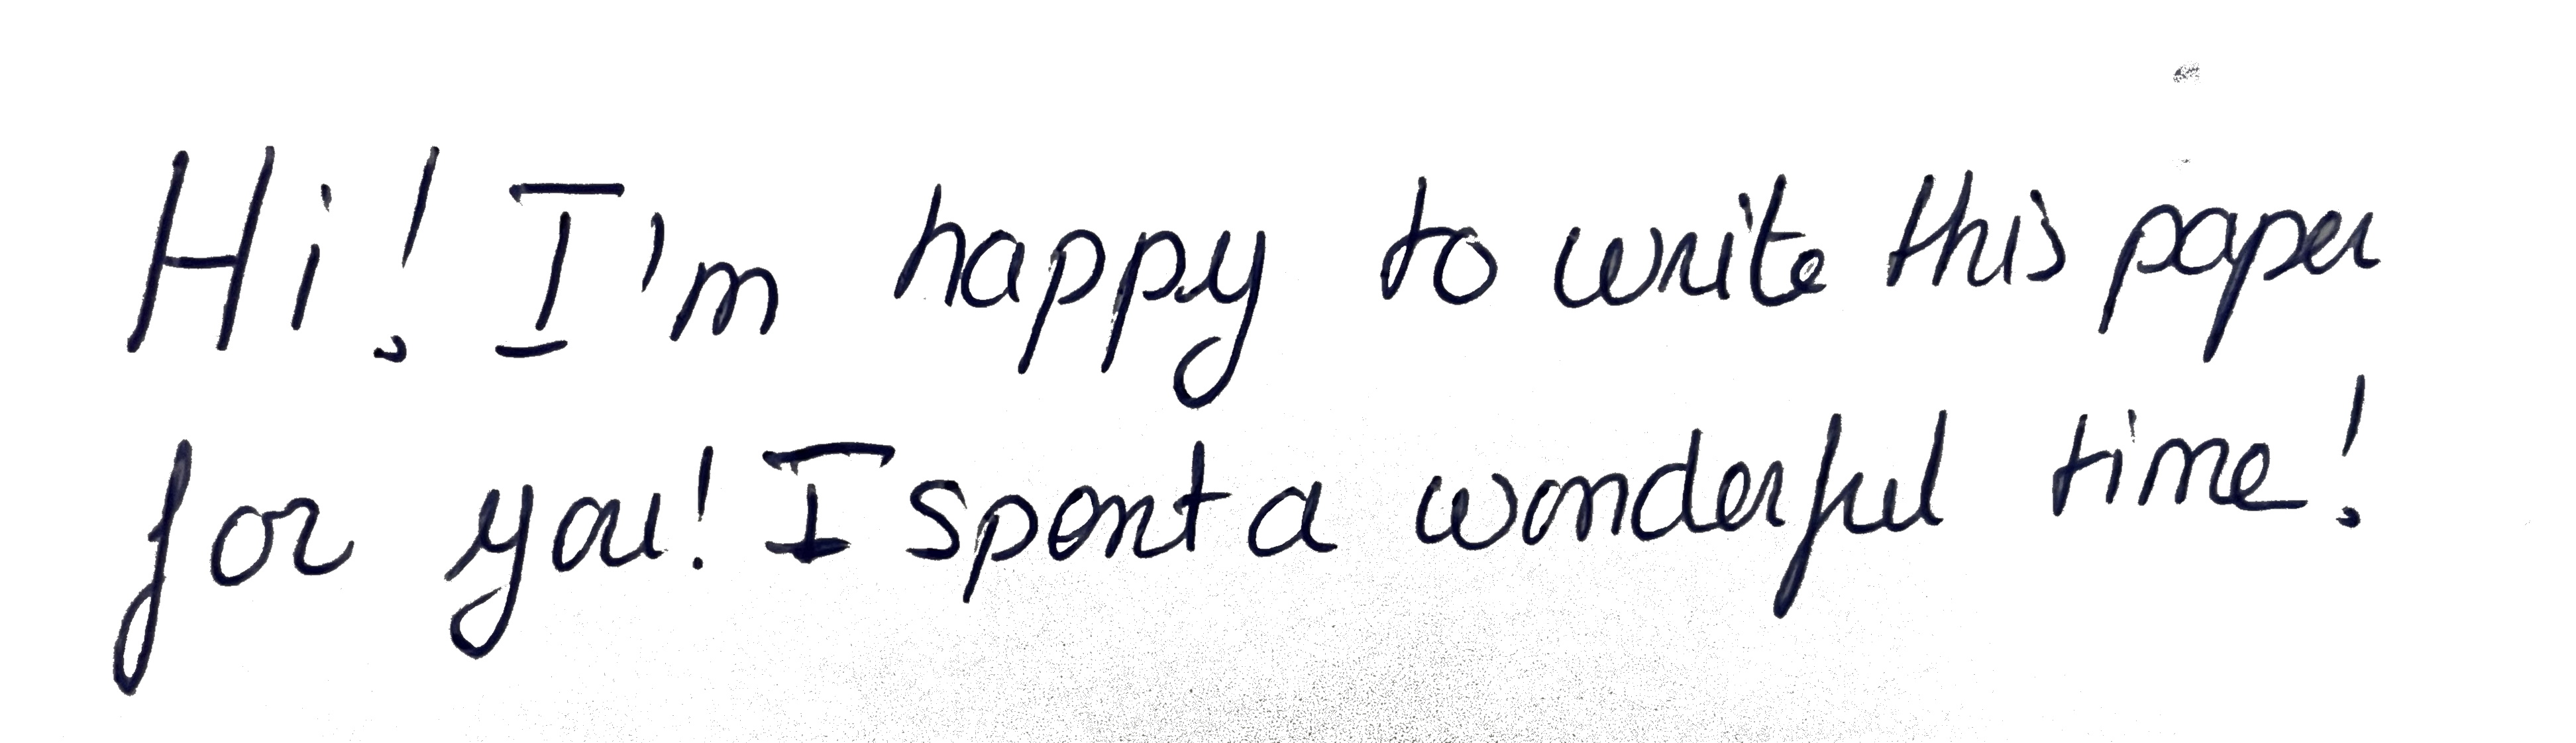 Hi! I'm happy to write this paper
for you! I spent a wonderful time!